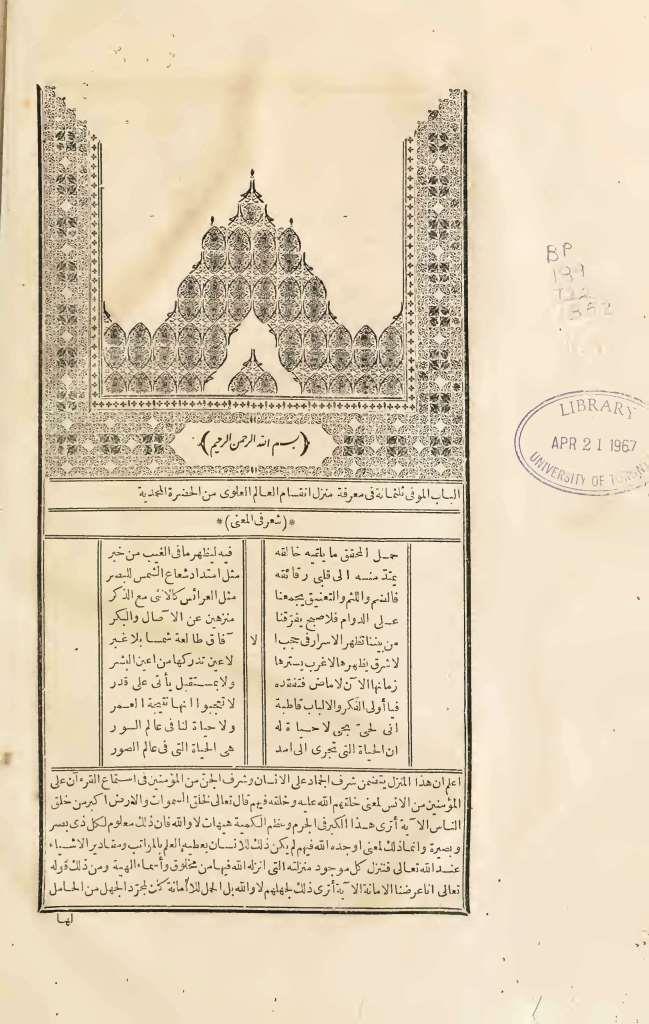 ﴿بسم الله الرحمن الرحيم﴾
الباب الموفى ثلثمائة فى معرفة منزل انقسام العالم العلوى من الحضرة المحمدية
*(شعر فى المعنى)*
حمل المحقق ما يلقيه خالقه فيه ليظهر ما فى الغيب من خبر
يمتد منه الى قلبى رقائقه مثل امتداد شعاع الشمس للبصر
فالضم واللثم والتعنيق يجمعنا مثل العرائس كالانثى مع الذكر
على الدوام فلا صبح يفرقنا منزهين عن الآصال والبكر
من بيننا تظهر الاسرار فى حجب ا لا آفاق طالعة شمسا بلا غير
لا شرق يظهرها لا غرب يسترها لا عين تدركها من اعين البشر
زمانها الآن لا ماض فتفقده ولا بمستقبل يأتى على قدر
فيا أولى الفكر والالباب قاطبة لا تعجبوا انها نتيجة العمر
انى لحى بحى لا حياة له ولا حياة لنا فى عالم السور
ان الحياة التى تجرى الى امد هى الحياة التى فى عالم الصور
اعلم ان هذا المنزل يتضمن شرف الجماد على الانسان وشرف الجن من المؤمنين فى استماع القرءآن على
المؤمنين من الانس لمعنى خلقهم الله عليه وخلقه فيهم قال تعالى لخلق السموات والارض اكبر من خلق
الناس الآية أترى هذا الكبر فى الجرم وعظم الكمية هيهات لا والله فان ذلك معلوم لكل ذى بصر
وبصيرة وانما ذلك لمعنى اوجده الله فيهم لم يكن ذلك للانسان يعطيه العلم بالمراتب ومقادير الاشياء
عند الله تعالى فتنزل كل موجود منزلته التى انزله الله فيها من مخلوق وأسماء الهية ومن ذلك قوله
تعالى انا عرضنا الامانة الآية أترى ذلك لجهلهم لا والله بل الحمل للامانة كان لمجرد الجهل من الحامل
لها
BP
189
LIBRARY
APR 21 1967
UNIVERSITY OF TORONTO